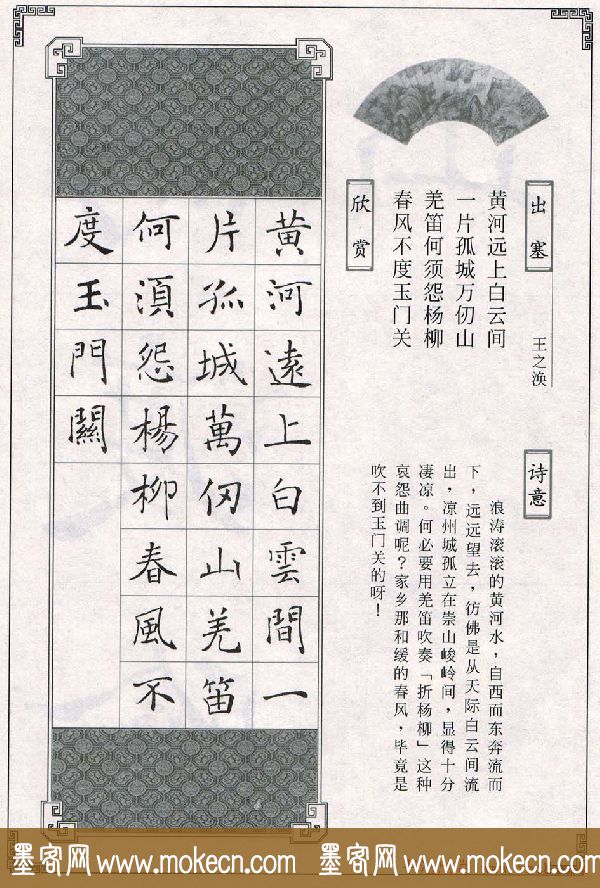 出塞
王之涣
黄河远上白云间
一片孤城万仞山
羌笛何须怨杨柳
春风不度玉门关
欣赏
诗意
浪涛滚滚的黄河水，自西而东奔流而
下，远远望去，彷佛是从天际白云间流
出，凉州城孤立在崇山峻岭间，显得十分
凄凉。何必要用羌笛吹奏「折杨柳」这种
哀怨曲调呢？家乡那和缓的春风，毕竟是
吹不到玉门关的呀！
黄河遠上白雲間一
片孤城萬仞山羌笛
何須怨楊柳春風不
度玉門關
墨客网 www.mokecn.com 墨客网 www.mokecn.com